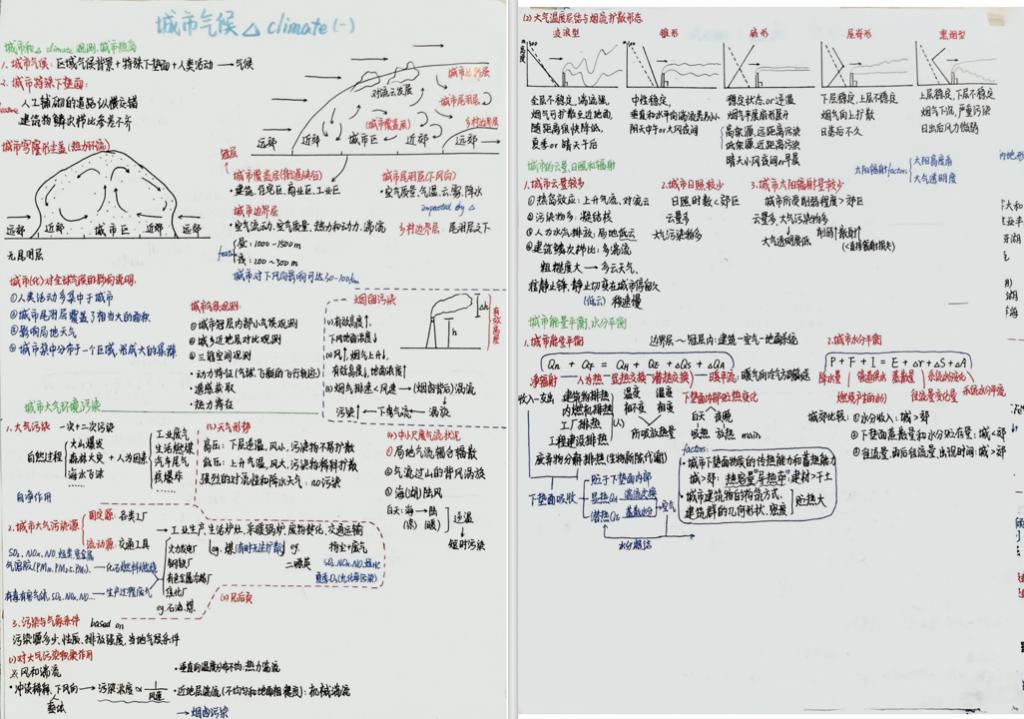 城市气候 △ climate (一)
城市和△ climate 观测,城市热岛
1. 城市气候: 区域气候背景+特殊下垫面+人类活动 → 气候
2. 城市特殊下垫面:
人工铺砌的道路纵横交错
建筑物鳞次栉比参差不齐
城市穹窿形尘盖(热力环流)
远郊 近郊 城市区 近郊 远郊
无尾羽层
城市边界层
对流云发展
城市尾羽层
(城市覆盖层)
乡村边界层
远郊 近郊 城市区 近郊 远郊
城市覆盖层
·建筑,住宅区,商业区,工业区
城市尾羽层(下风向)
·空气质量,气温,云雾,降水
impacted by △
城市边界层
·空气流动,空气质量,热力和动力,湍流
乡村边界层: 尾羽层之下
昼: 1000~1500m
夜: 200~300m
城市(化)对全球气候的影响说明:
①人类活动多集中于城市
②城市尾羽层覆盖了相当大的面积
③影响局地天气
④城市集中分布于一个区域,形成大的集群
城市气候观测:
①城市冠层内部小气候观测
②城乡近地层对比观测
③三维空间观测
·遥感获取
烟囱污染
有效高度
△h
h
(1)有效高度↑,
下风地面浓度↓
(2)风↑,烟气上升↓,
有效高度↓,地面浓度↑
(3)烟气排速<风速 → (烟囱背后)涡流
污染↑ ← 下曳气流 ← 涡流
城市大气环境,污染
1. 大气污染 一次+二次污染
自然过程
火山爆发
森林大火
海水飞沫
+人为因素
工业废气
生活燃煤
汽车尾气
核爆炸
……
自净作用
(3)天气形势
高压: 下层逆温,风小,污染物不易扩散
低压: 上升气流,风大,污染物稀释扩散
强烈的对流性和降水天气: no污染
(4)中小尺度气流状况
①局地气流辐合辐散
②气流过山的背风涡旋
③海(湖)陆风
白天: 海→陆
逆温
短时污染
2. 城市大气污染源
固定源: 各类工厂
流动源: 交通工具
→ 工业生产,生活炉灶,采暖锅炉,废物焚化,交通运输
火力发电厂
钢铁厂
有色金属冶炼厂
焦化厂
eg. 石油,煤
eg. 煤
(2)见后页
3. 污染与气象条件 based on
污染源多少,性质,排放强度,当地气象条件
(1)对大气污染积聚作用
※风和湍流
·冲淡稀释,下风向 → 污染浓度∝ 1/风速
·垂直向温度分布不均: 热力湍流
·近地层湍流(不均匀和地面粗糙度): 机械湍流
→烟囱污染
(2)大气温度层结与烟流扩散形态
波浪型 锥形 扇形 屋脊形 熏烟型
全层不稳定,湍流强,
烟气可扩散至近地面,
随距离很快降低,
夏季or晴天午后
中性稳定,
垂直和水平向湍流差别小
阴天中午or大风夜间
稳定状态or逆温
烟气平展扇形展开
高架源,远距离污染
低架源,近距离污染
晴天小风夜间or早晨
下层稳定,上层不稳定
烟气向上扩散
日落后不久
上层稳定,下层不稳定
烟气下沉,严重污染
日出后风力微弱
城市的云量,日照和辐射
太阳辐射factors:
太阳高度角
大气透明度
1. 城市云量较多
①热岛效应: 上升气流,对流云
②污染物多: 凝结核
③人为水汽排放: 局地低云
④建筑鳞次栉比: 多湍流
粗糙度大 → 多云天气.
(低云) 移速慢
2. 城市日照较少
日照时数<郊区
云量多
大气污染物多
3. 城市太阳辐射量较少
城市所受削弱程度>郊区
云量多,大气污染物多
大气透明度低
城市能量平衡,水分平衡
1. 城市能量平衡 边界层~冠层内: 建筑-空气-地面系统
Qn + QF = QH + QE + △Qs + △QA
净辐射 人为热 显热交换 潜热交换
收入-支出
建筑物排热
内燃机排热
工厂排热
工程建设排热
废弃物分解排热(生物新陈代谢)
下垫面内部贮热变化
白天 夜晚
吸热 放热
下垫面吸收
贮于下垫面内部
显热QH 湍流交换
潜热QE 蒸散水分
空气
水分凝结
factors:
·城市下垫面物质的传热能力和蓄热能力
城>郊: 热容量,导热率: 建材>干土
·城市建筑物的构筑方式,
建筑群的几何形状,密度
贮热大
2. 城市水分平衡
P + F + I = E + △r + △S + △A
城郊比较: ①水分收入: 城>郊
②下垫面蒸散量和水分贮存量: 城<郊